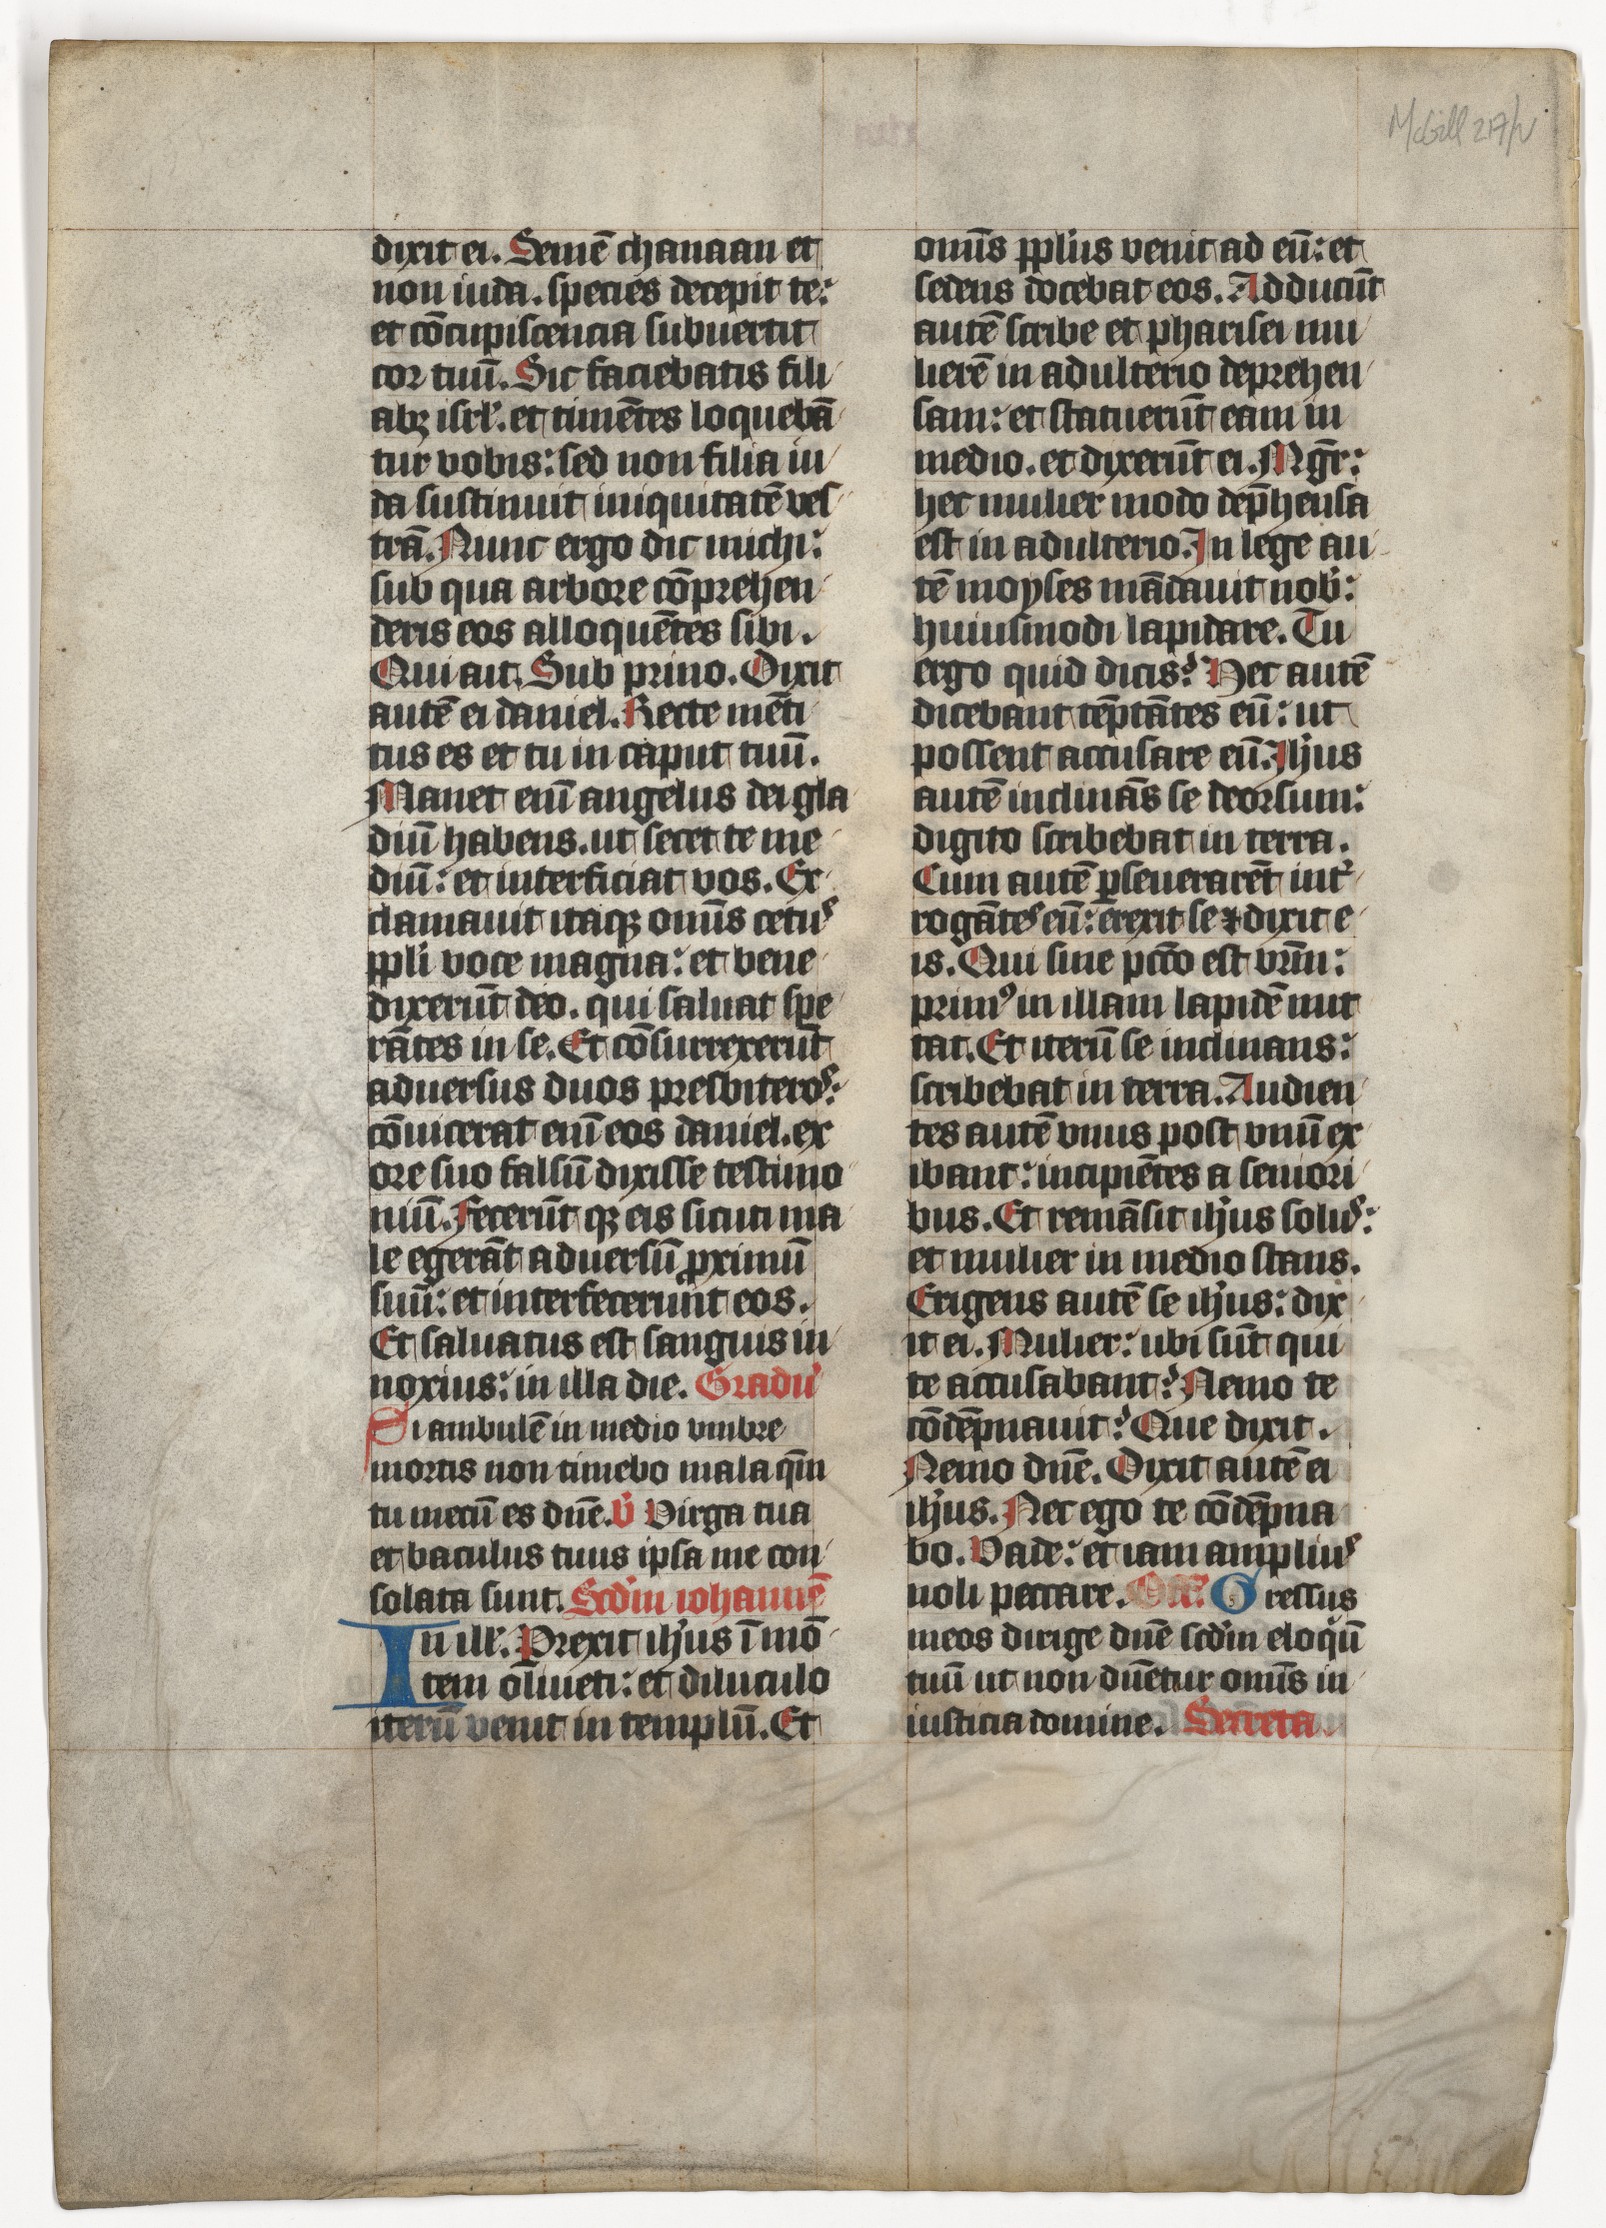 McGill 217/v
dixit ei. Semē chanaan et
non iuda. species decepit te:
et cōcupiscencia subuertit
cor tuū. Sic faciebatis fili
abꝫ isrl'. et timētes loquebā
tur vobis: sed non filia iu
da sustinuit iniquitatē ves
trā. Nunc ergo dic michi:
sub qua arbore cōprehen
deris eos alloquētes sibi.
Qui ait. Sub prino. Dixit
autē ei daniel. Recte mēti
tus es et tu in caput tuū.
Manet eni̅ angelus dei gla
diū habens. ut secet te me
diū: et interficiat vos. Ex
clamauit itaqꝫ omīs cetus
ppl'i voce magna: et bene
dixerūt deo. qui saluat spe
rātes in se. Et cōsurrexerūt
aduersus duos presbiteros:
cōuicerat eni̅ eos daniel. ex
ore suo falsū dixisse testimo
niū. Fecerūt qꝫ eis sicuti ma
le egerāt aduersū ꝓximū
suū: et interfecerunt eos.
Et saluatus est sanguis in
noxius: in illa die. Gradu'
Si ambulē in medio vmbre
mortis non timebo mala qm̄
tu mecū es dn̄e. v̓ Virga tua
et baculus tuus ipsa me con
solata sunt. Scd'm iohannē
In ill'. Prexit ih'us ī mō
tem oliueti: et diluculo
iterū venit in templū. Et
omīs ppl'us venit ad eū: et
sedens docebat eos. Adducūt
autē scribe et pharisei mu
lierē in adulterio deprehen
sam: et statuerūt eam in
medio. et dixerūt ei. Mgr̄:
hec mulier modo dep̄hensa
est in adulterio. In lege au
tē moyses mādauit nob':
huiusmodi lapidare. Tu
ergo quid dicis? Hec autē
dicebant tēptātes eū: ut
possent accusare eū. Ih'us
autē inclinās se deorsum:
digito scribebat in terra.
Cum autē ꝑseuerarēt int'
rogātes eū: erexit se ⁊ dixit e
is. Qui sine pctō est vr̄m:
primꝰ in illam lapidē mit
tat. Et iterū se inclinans:
scribebat in terra. Audien
tes autē vnus post vnū ex
ibant: incipiētes a seniori
bus. Et remāsit ih'us solus:
et mulier in medio stans.
Erigens autē se ih'us: dix
it ei. Mulier: ubi sūt qui
te accusabant? Nemo te
cōdēpnauit? Que dixit.
Nemo dn̄e. Dixit autē ei
ih'us. Nec ego te cōdēpna
bo. Vade: et iam amplius
noli peccare. Off. Gressus
meos dirige dn̄e scd'm eloqͥū
tuū ut non dn̄etur omīs in
iusticia domine. Secreta.